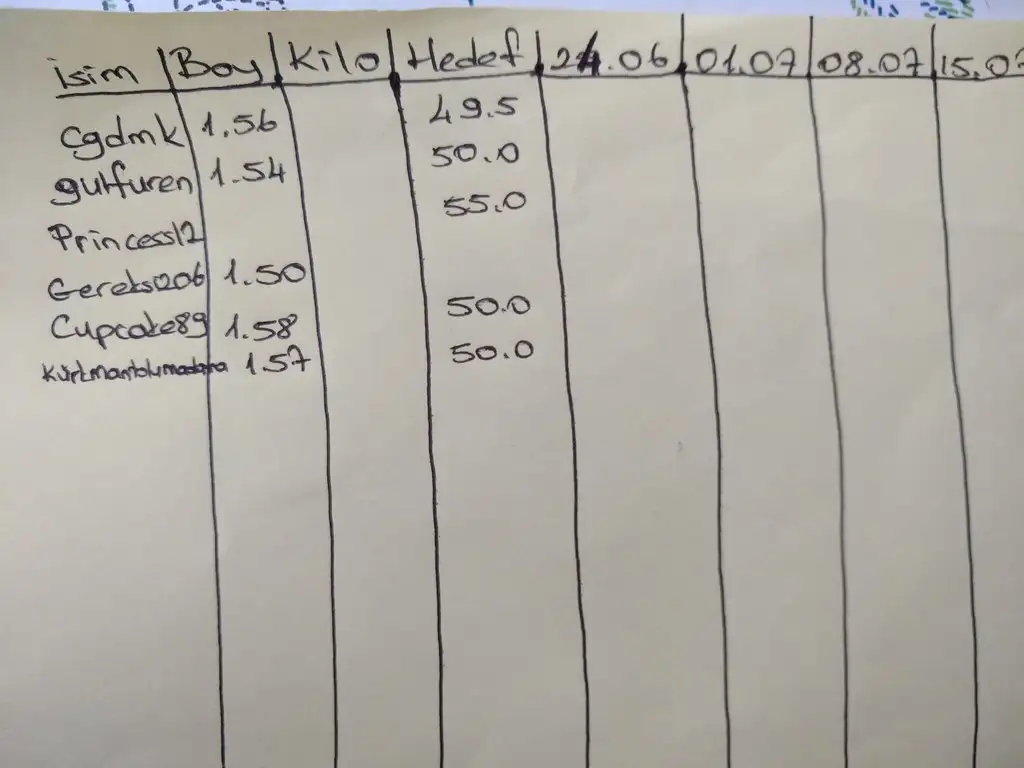 isim Boy Kilo Hedef 24.06 01.07 08.07 15.07
Cgdmk 1.56 49.5
gulfuren 1.54 50.0
Princess12 55.0
Gereks1206 1.50
Cupcake89 1.58 50.0
Kürkmantolumadonna 1.57 50.0